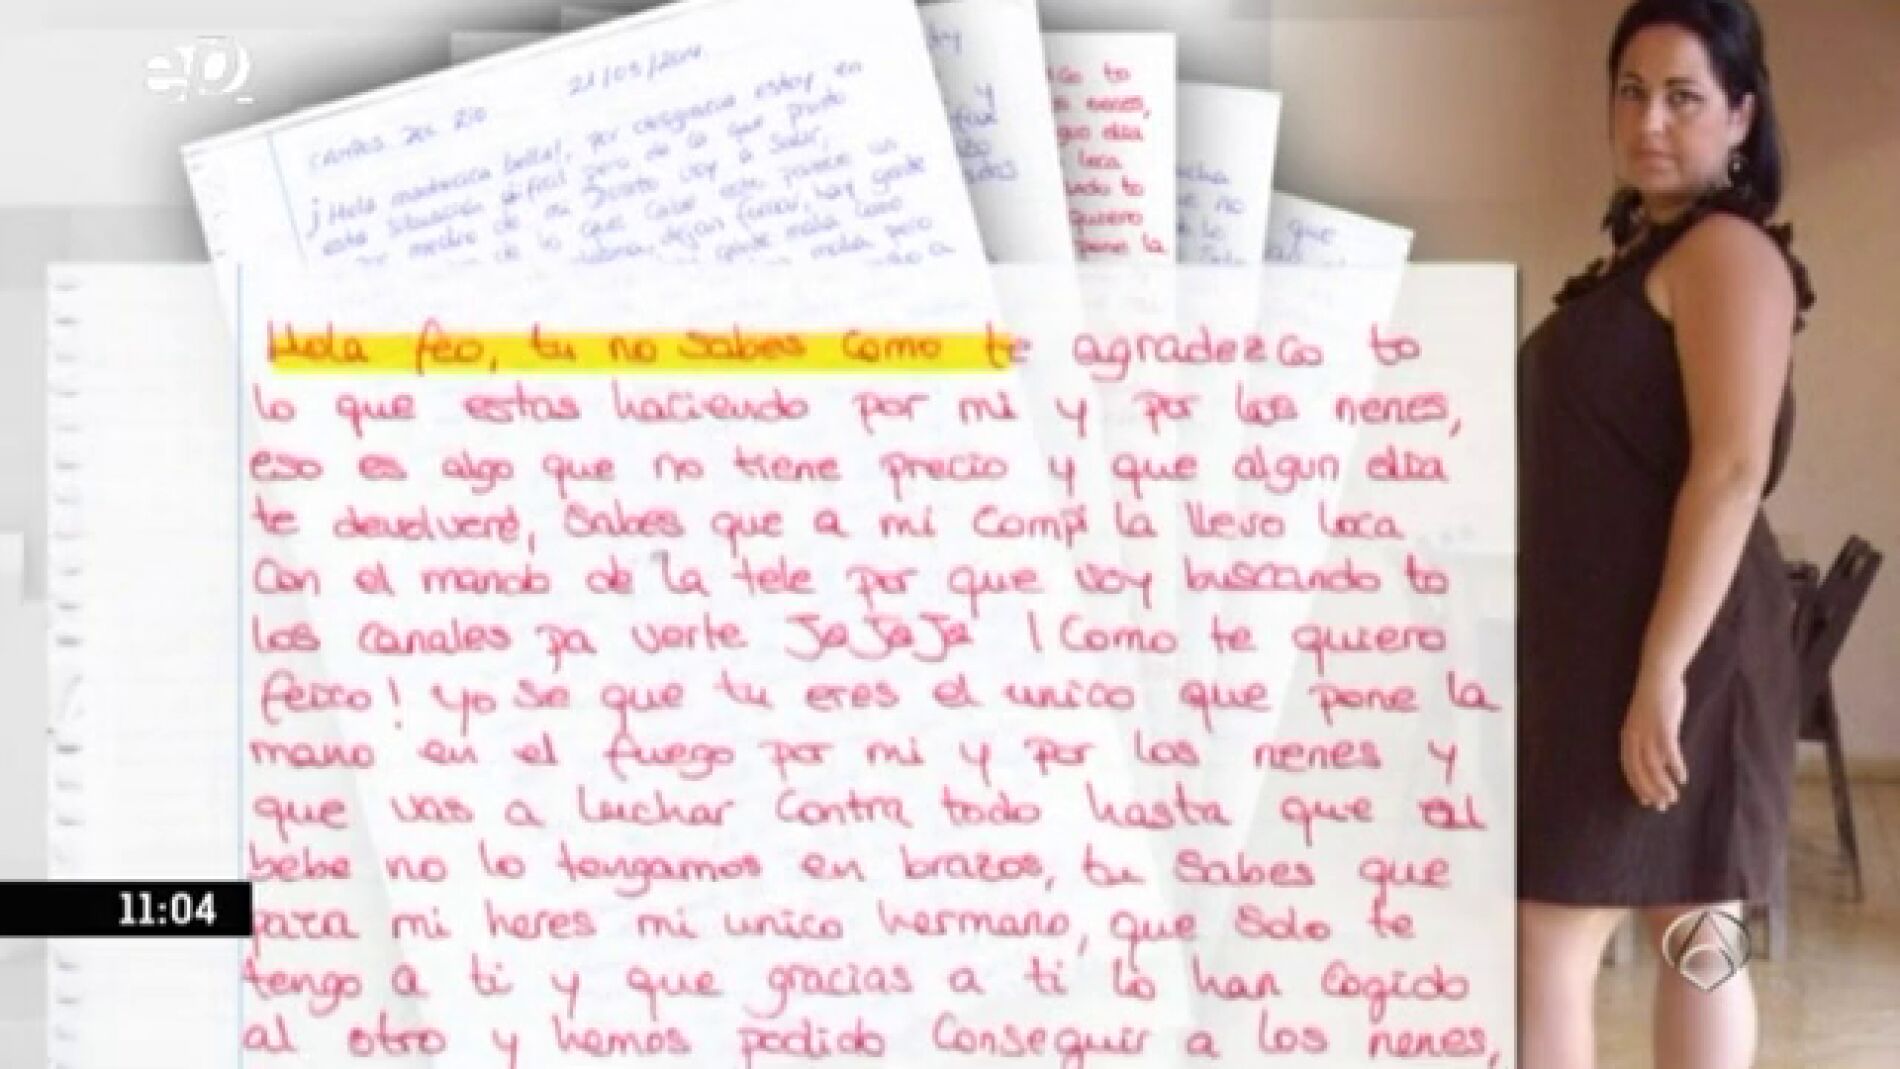 eP
21/05/2011
CAMPOS DEL RIO
¡Hola madrecica bella!, por desgracia estoy en
esta situación dificil pero de la que pronto
voy a salir,
de lo que cabe esto parece un
dejan fumar, hay gente
gente mala
y
co to
nenes,
dia
loca
to
quiero
pone la
no
lo
que
Hola feo, tu no sabes como te agradezco to
lo que estas haciendo por mi y por los nenes,
eso es algo que no tiene precio y que algun dia
te devolveré, sabes que a mi compi la llevo loca
con el mando de la tele por que voy buscando to
los canales pa verte JaJaJa ! Como te quiero
feico! yo se que tu eres el unico que pone la
mano en el fuego por mi y por los nenes y
que vas a luchar contra todo hasta que al
bebe no lo tengamos en brazos, tu sabes que
para mi heres mi unico hermano, que solo te
tengo a ti y que gracias a ti lo han cogido
al otro y hemos podido conseguir a los nenes,
11:04